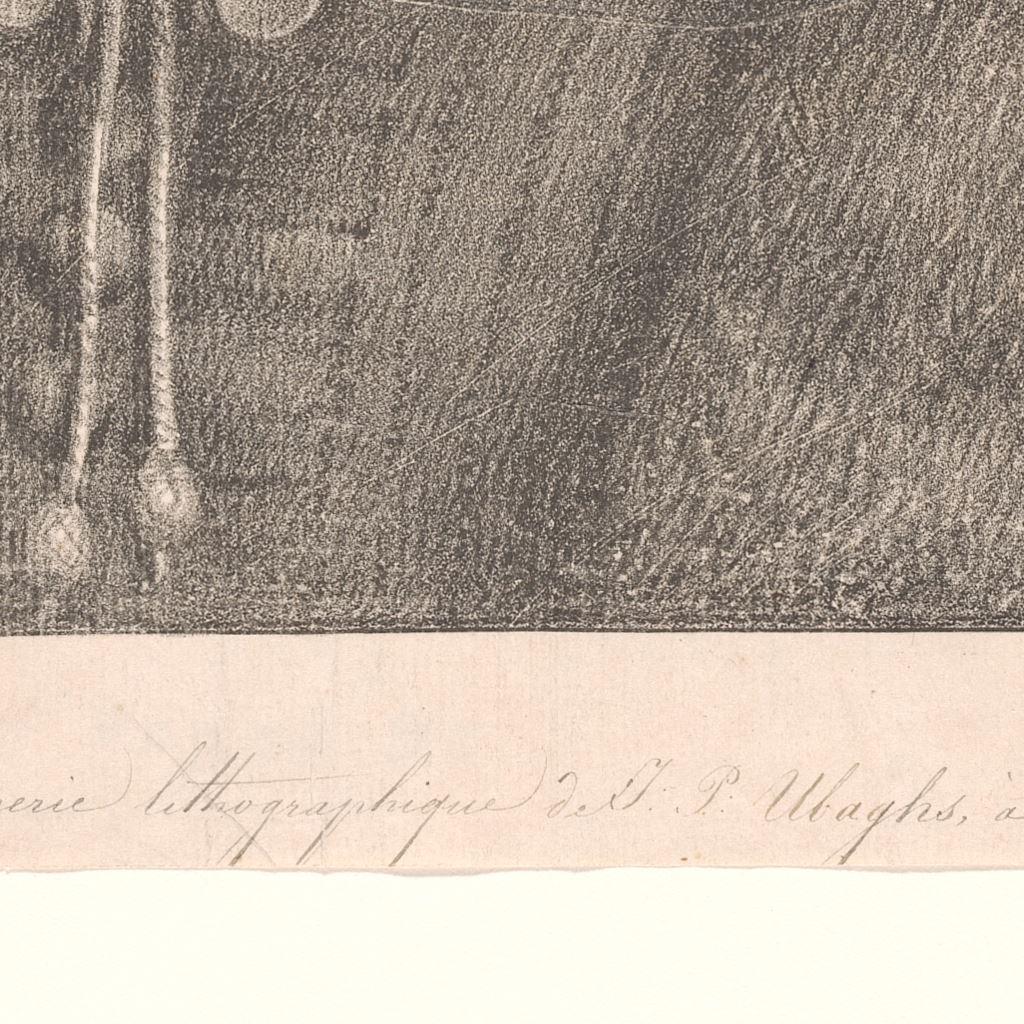 erie lithographique de J. P. Ubaghs, à